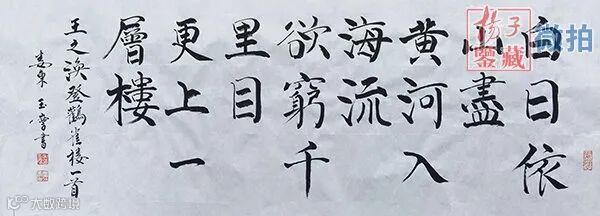 白日依
山盡
黄河入
海流
欲窮千
里目
更上一
層樓
王之渙登鸛雀樓一首
玉書
杨子
鉴藏
微拍
大数跨境